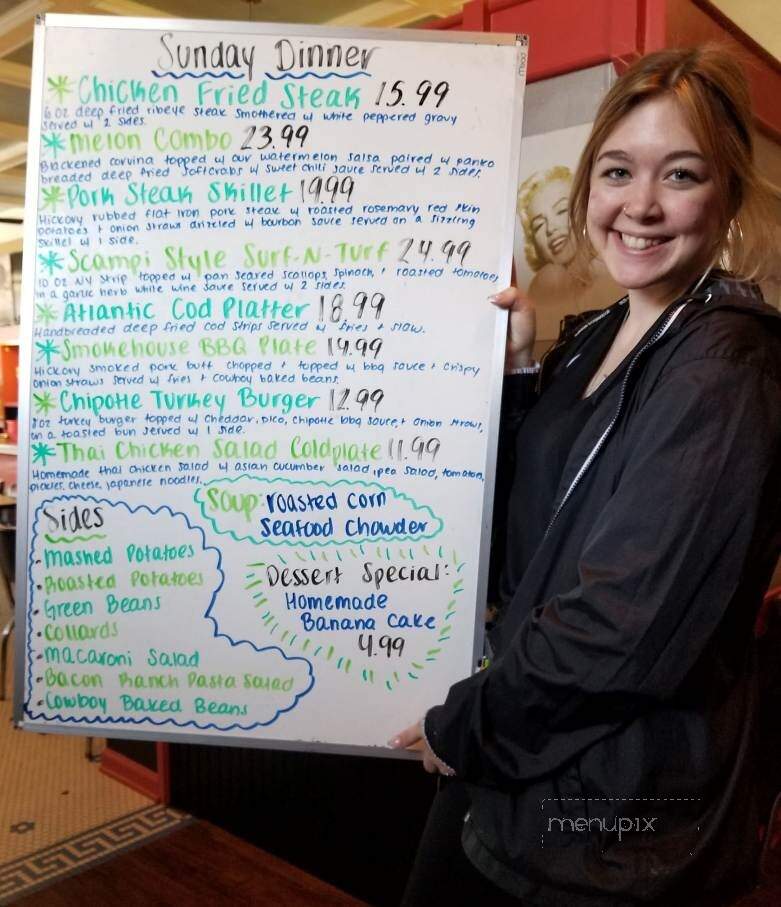 Sunday Dinner
Chicken Fried Steak 15.99
6 oz deep fried ribeye steak smothered w/ white peppered gravy
served w/ 2 sides.
Melon Combo 23.99
Blackened corvina topped w/ our watermelon salsa paired w/ panko
breaded deep fried softcrabs w/ sweet chili sauce served w/ 2 sides.
Pork Steak Skillet 19.99
Hickory rubbed flat iron pork steak w/ roasted rosemary red skin
potatoes + onion straws drizled w/ bourbon sauce served on a sizzling
skillet w/ 1 side.
Scampi Style Surf-N-Turf 24.99
10 oz NY strip topped w/ pan seared scallops, spinach, + roasted tomatoes
in a garlic herb white wine sauce served w/ 2 sides.
Atlantic Cod Platter 18.99
Handbreaded deep fried cod strips served w/ fries + slaw.
Smokehouse BBQ Plate 14.99
Hickory smoked pork butt chopped + topped w/ bbq sauce + crispy
onion straws served w/ fries + cowboy baked beans.
Chipotle Turkey Burger 12.99
8oz turkey burger topped w/ cheddar, pico, chipotle bbq sauce, + onion straws,
on a toasted bun served w/ 1 side.
Thai Chicken Salad Coldplate 11.99
Homemade thai chicken salad w/ asian cucumber salad, pea salad, tomatoes,
pickles, cheese, japanese noodles.
Soup: roasted corn
Seafood Chowder
Sides
-Mashed Potatoes
-Roasted Potatoes
-Green Beans
-Collards
-Macaroni Salad
-Bacon Ranch Pasta Salad
-Cowboy Baked Beans
Dessert Special:
Homemade
Banana Cake
4.99
menupix